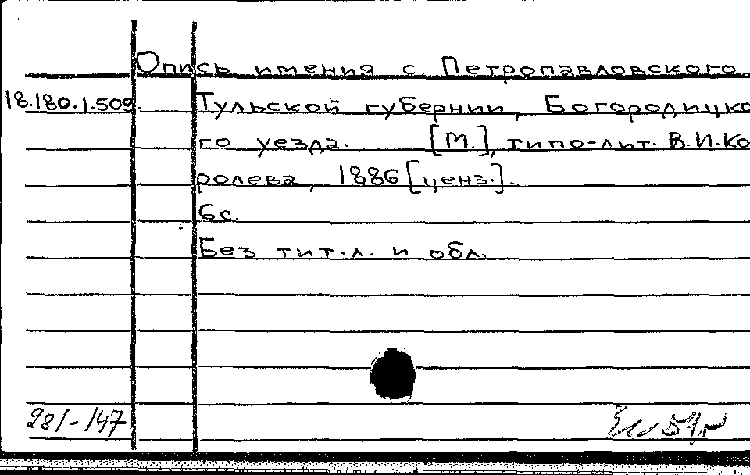 Опись имения с Петропавловского
18.180.1.509 Тульской губернии, Богородицко
го уезда. [М.], типо-лит. В.И.Ко
ролева, 1886 [ценз.].
6с.
Без тит.л. и обл.
281-147